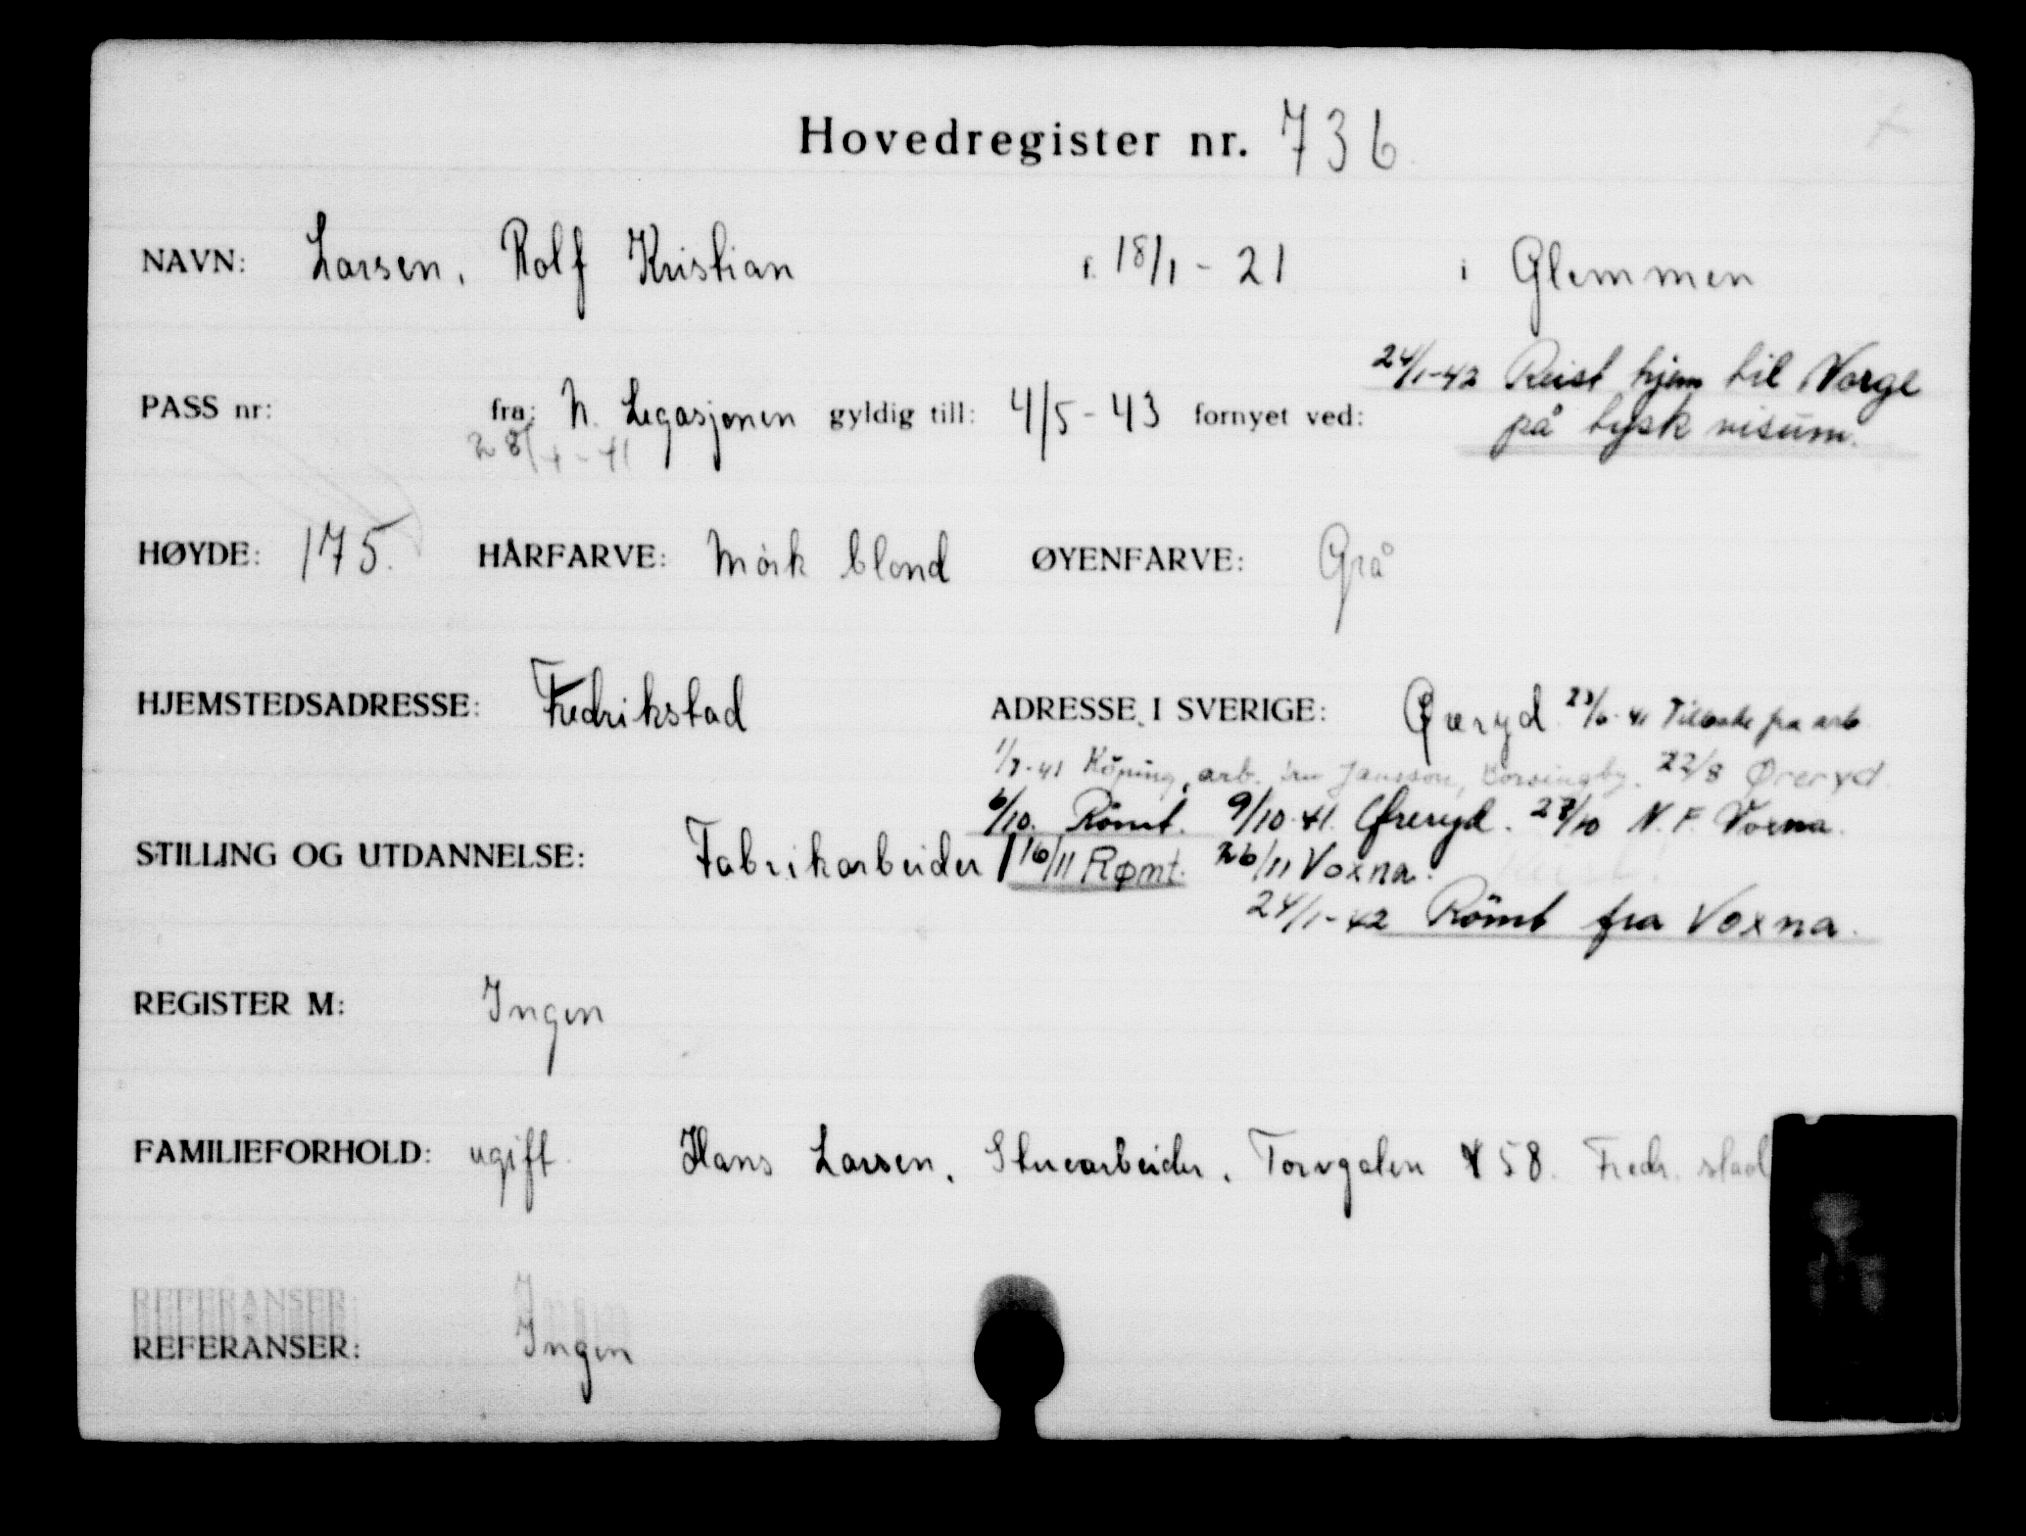 Hovedregister nr. 736
NAVN: Larsen, Rolf Kristian f. 18/1 - 21 i Glemmen
24/1-42 Reist hjem til Norge
PASS nr: fra: N. Legasjonen gyldig till: 4/5 - 43 fornyet ved: på tysk visum.
28/4 - 41
HØYDE: 175. HÅRFARVE: Mörk blond ØYENFARVE: Grå
HJEMSTEDSADRESSE: Fredrikstad ADRESSE I SVERIGE: Øreryd 23/6-41 Tilbake fra arb.
1/7-41 Köping, arb. Jansson, 22/8 Øreryd.
6/10. Römt. 9/10-41. Øreryd. 27/10 N. F. Voxna.
STILLING OG UTDANNELSE: Fabrikarbeider 16/11 Rømt. 26/11 Voxna.
24/1-42 Römt fra Voxna.
REGISTER M: Ingen
FAMILIEFORHOLD: ugift. Hans Larsen, Stuearbeider, Torvgaten 58. Fredr. stad
REFERANSER:
REFERANSER: Ingen